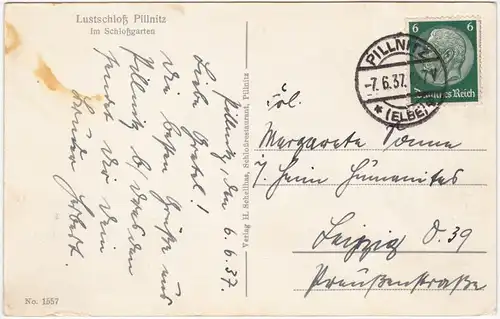 Lustschloß Pillnitz
Im Schloßgarten
Pillnitz, den 6.6.37.
Liebe Gretel!
Die besten Grüße aus
Pillnitz b/ Dresden
sendet Dir Dein
Herbert.
No. 1557
Verlag H. Schellhas, Schloßrestaurant, Pillnitz
6 6
Deutsches Reich
PILLNITZ
-7.6.37.
* (ELBE) *
Frl.
Margarete Sonne
z/. Heim Humanitas
Leipzig O. 39
Preußenstraße